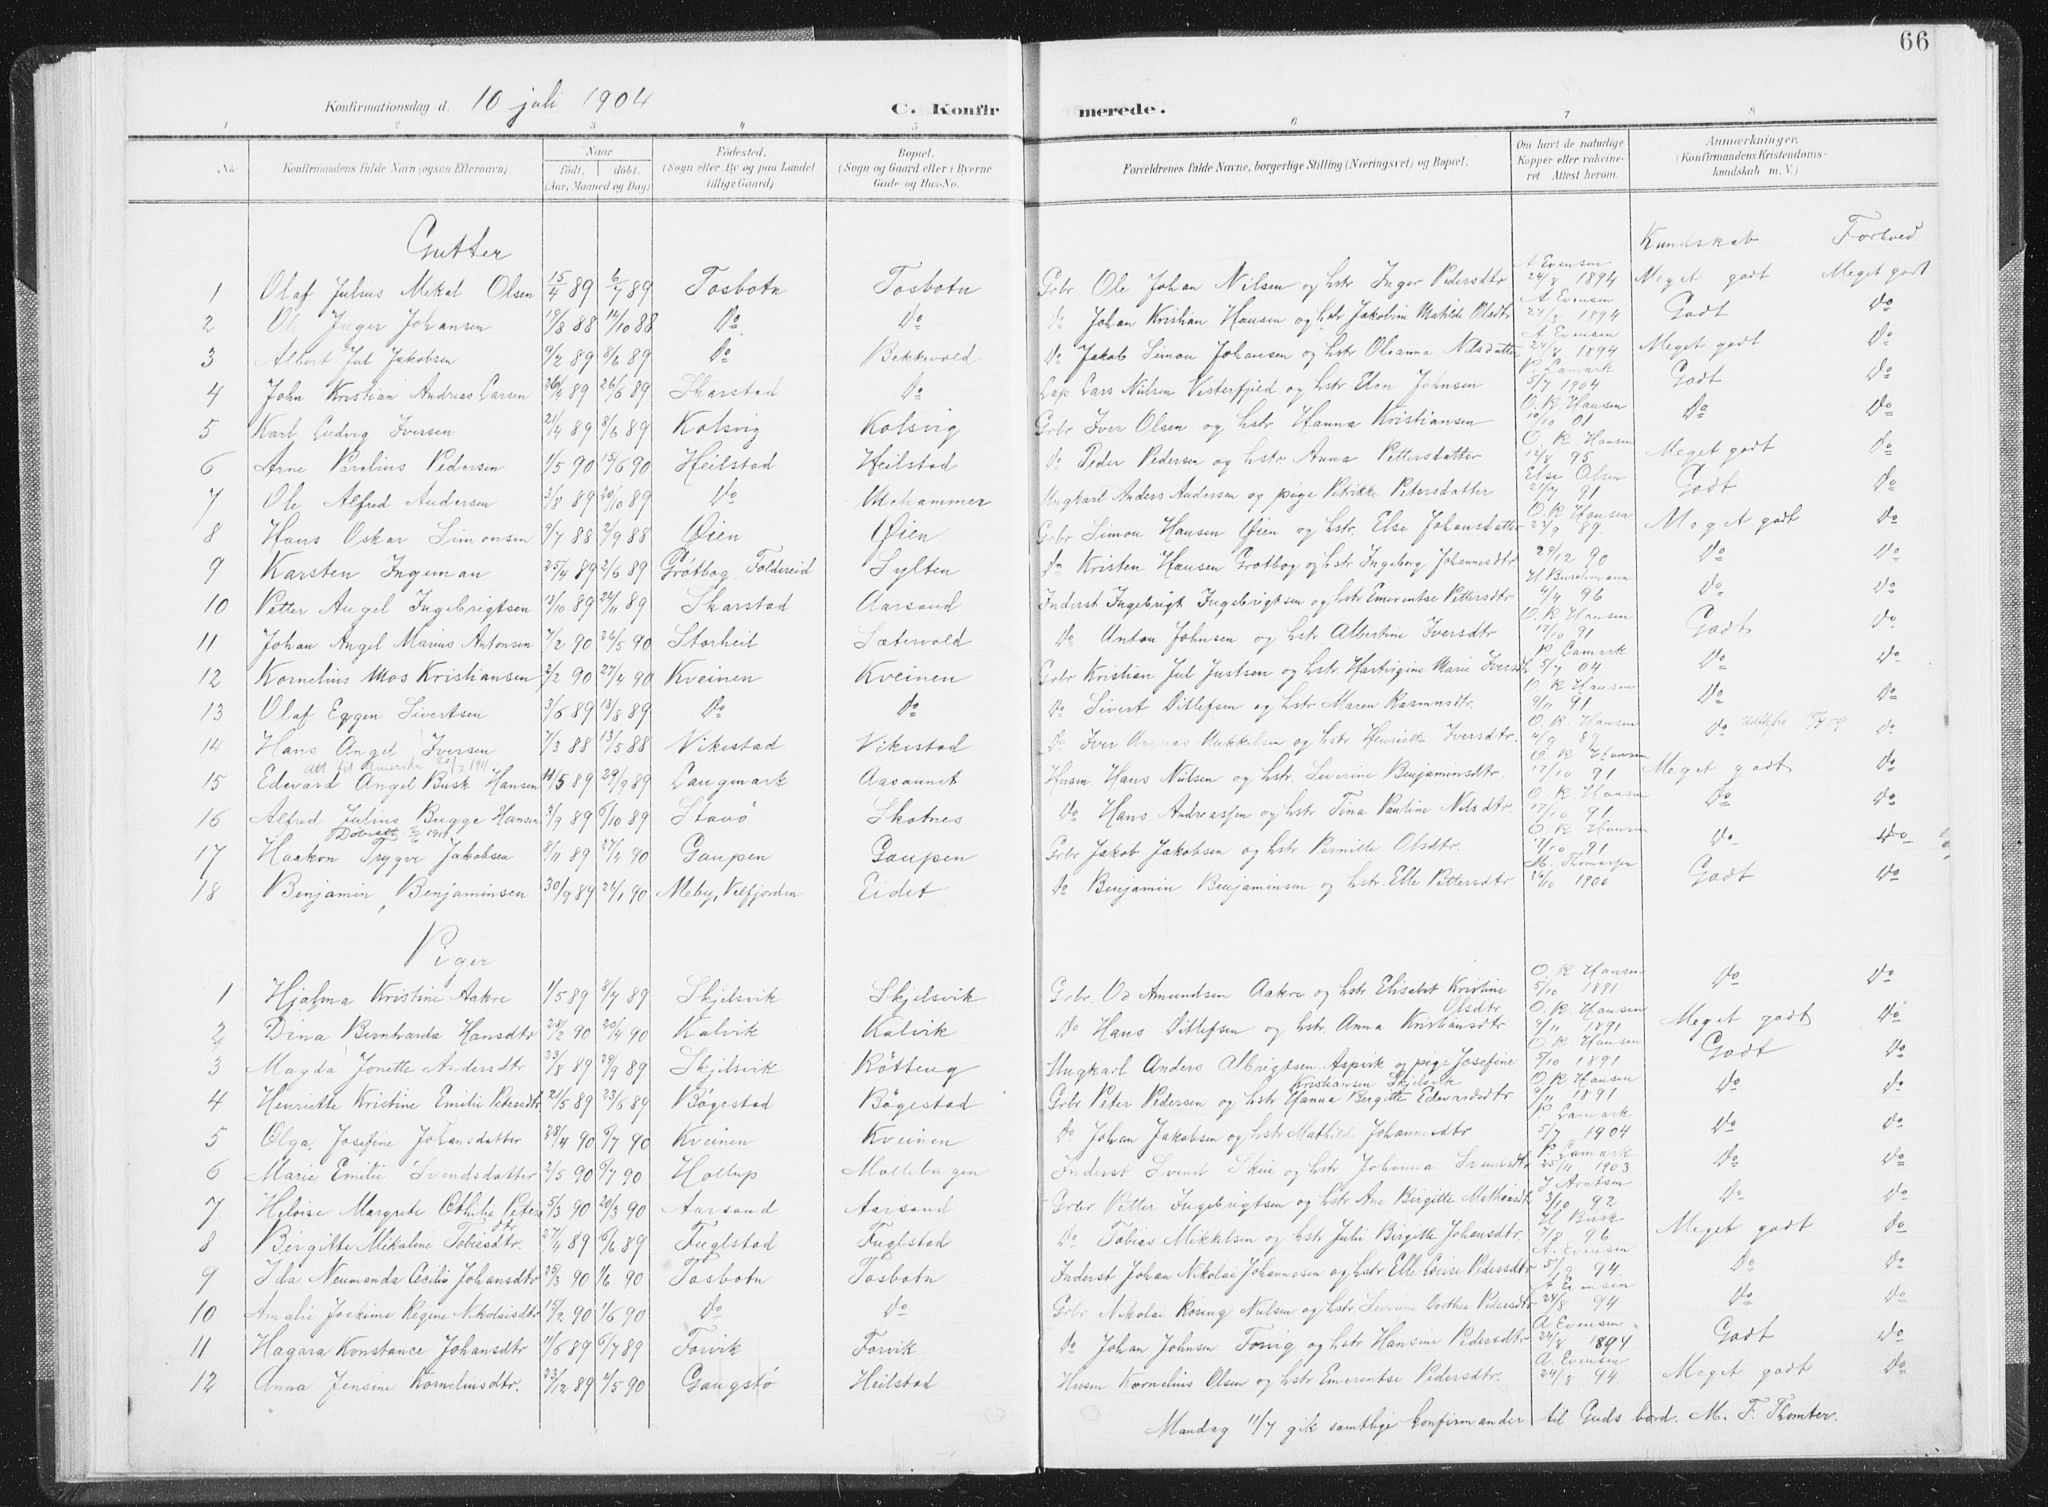 66
Konfirmationsdag d. 10 juli 1904 C. Konfirmerede.
1 2 3 4 5 6 7 8
No. Konfirmandens fulde Navn (ogsaa Efternavn) Naar födt. döbt. (Aar, Maaned og Dag) Födested. (Sogn eller By og paa Landet tillige Gaard) Bopæl. (Sogn og Gaard eller i Byerne Gade og Hus-No. Forældrenes fulde Navne, borgerlige Stilling (Næringsvei) og Bopæl. Om havt de naturlige Kopper eller vakcineret. Attest herom. Anmærkninger. (Konfirmandens Kristendomskundskab m. V.)
Gutter Kundskab Forhold
1 Olaf Julius Mikal Olsen 15/4 89 6/7 89 Tosbotn Tosbotn Grbr Ole Johan Nilsen og hstr Inger Pedersdtr A Evensen 24/8 1894 Meget godt Meget godt
2 Ol Inger Johansen 19/8 88 14/10 88 Do Do Do Johan Kristian Hansen og hstr Jakobine Matilde Olsdtr A Evensen 24/8 1894 Godt Do
3 Albert Jul Jakobsen 9/2 89 8/6 89 Do Bekkevold Do Jakob Simon Johansen og hstr Oleanna Nilsdatter A Evensen 24/8 1894 Meget godt Do
4 John Kristian Andreas Larsen 26/4 89 26/6 89 Skarstad Do Lap Lars Nilsen Vesterfjeld og hstr Elen Johnsen P. Lamark 5/7 1904 Godt Do
5 Karl Ludvig Iversen 21/4 89 8/6 89 Kolsvig Kolsvig Grbr Iver Olsen og hstr Hanna Kristiansen O. R. Hansen 10/10 01 Do Do
6 Arne Parelius Pedersen 1/5 90 15/6 90 Heilstad Heilstad Do Peder Pedersen og hstr Anna Pettersdatter O. R. Hansen 12/8 95 Meget godt Do
7 Ole Alfred Andersen 3/8 89 20/10 89 Do Utehammer Ungkarl Anders Andersen og pige Petrikke Petersdatter Else Olsen 27/7 91 Godt Do
8 Hans Oskar Simonsen 9/7 88 2/9 88 Øien Øien Grbr Simon Hansen Øien og hstr. Else Johansdatter O. R. Hansen 23/9 89. Meget godt Do
9 Karsten Ingeman 25/4 89 2/6 89 Grötbog, Foldereid Sylten Do Kristen Hansen Grotbog og hstr Ingeborg Johannesdtr 29/12 90 Do Do
10 Petter Angel Ingebrigtsen 12/10 89 24/11 89 Skarstad Aarsand Inderst Ingebrigt Ingebrigtsen og hstr Emerentse Pettersdtr H Buschmann 4/4 96 Do Do
11 Johan Angel Marius Antonsen 7/2 90 26/5 90 Storheil Sætervold Do Anton Johnsen og hstr Albertine Iversdtr O. R. Hansen 17/10 91 Godt Do
12 Kornelius Mos Kristiansen 2/2 90 27/4 90 Kveinen Kveinen Grbr Kristian Jul Justsen og hstr Hartvigine Marie Iversdtr P Lamark 5/7 04 Do Do
13 Olaf Eggen Sivertsen 3/6 89 18/8 89 Do Do Do Sivert Ditlefsen og hstr Maren Rasmusdtr. O R Hansen 9/11 91 Do Do
14 Hans Angel Iversen 7/3 88 13/5 88 Vikestad Vikestad Do Iver Mikkelsen og hstr Henriette Iversdtr. O. R. Hansen 4/9 89 Do Do
att. til Amerika 20/2 1911
15 Edevard Angel Busk Hansen 11/5 89 29/9 89 Laugmark Aasaunet Husm. Hans Nilsen og hstr. Severine Benjaminsdtr. O R Hansen 17/10 91 Meget godt Do
16 Alfred Julius Bugge Hansen 3/9 89 6/10 89 Stavö Skotnes Do Hans Andreassen og hstr Tina Pauline Nilsdtr. O. R. Hansen 17/10 91 Do Do
Dobratt 2/6 1919
17 Haakon Trygve Jakobsen 8/11 89 27/4 90 Gaupen Gaupen Grbr Jakob Jakobsen og hstr Pernille Olsdtr. O R Hansen 17/10 91 Do Do
18 Benjamin Benjaminsen 30/9 89 26/1 90 Meby, Velfjorden Eidet Do Benjamin Benjaminsen og hstr. Elle Pettersdtr M. Thomassen 26/10 1900 Godt Do
Piger
1 Hjalma Kristine Aakre 1/5 89 8/7 89 Skjelsvik Skjelsvik Grbr. Od Amundsen Aakre og hstr Elisabet Kristine Olsdtr O. R Hansen 5/10 1891 Do Do
2 Dina Bernharda Hansdtr 28/2 90 20/4 90 Kalvik Kalvik Do Hans Ditlefsen og hstr. Anna Kristiansdtr O. R. Hansen 9/11 1891 Meget godt Do
3 Magda Jonette Andersdtr 23/8 89 29/9 89 Skjelsvik Rötteng Ungkarl Anders Albrigtsen Aspvik og pige Josefine Kristiansen Skjelsvik O. R. Hansen 5/10 1891 Godt Do
4 Henriette Kristine Emilie Petersdtr 21/5 89 23/6 89 Bögestad Bögestad Grbr Peter Pedersen og hstr Hanna Birgitte Edvardsdtr O R Hansen 9/11 1891 Do Do
5 Olga Josefine Johansdatter 28/4 90 6/7 90 Kveinen Kveinen Do Johan Jakobsen og hstr Mathilde Johannesdtr P. Lamark 5/7 1904 Do Do
6 Marie Emilie Svendsdatter 2/5 90 6/7 90 Hollup Mollebogen Inderst Svend Skie og hstr Johanna Svendsdtr P. Lamark 25/11 1903 Do Do
7. Heloise Margrete Othilie Petersdtr 5/3 90 20/3 90 Aarsand Aarsand Grbr Petter Ingebrigtsen og hstr Ane Birgitte Mathiasdtr J Arntsen 3/10 92 Do Do
8 Birgitte Mikaline Tobiasdtr. 27/4 89 6/6 89 Fuglstad Fuglstad Do Tobias Mikkelsen og hstr Julie Birgitte Johansdtr. H Busk 7/8 96 Meget godt Do
9 Ida Neumanda Cecilie Johansdtr 25/3 90 1/6 90 Tosbotn Tosbotn Inderst Johan Nikolai Johannesen og hstr Elle Lovise Pedersdtr A. Evensen 5/9 94. Do Do
10 Amalie Joakime Regine Nikolaisdtr 15/2 90 1/6 90 Do Do Grbr Nikolai Rosing Nielsen og hstr. Severine Dorthea Pedersdtr A Evensen 24/8 94 Do Do
11 Hagara Konstance Johansdtr 11/6 89 6/7 89 Forvik Forvik Do Johan Johnsen Forvig og hstr Hansine Pedersdtr A Evensen 24/8 1894 Godt Do
12 Anna Jensine Korneliusdtr. 23/12 89 4/5 90 Gaugstö Heilstad Husm Kornelius Olsen og hstr Emerentse Pedersdtr. A. Evensen 24/8 94. Meget godt Do
Mandag 11/7 gik samtlige konfirmander til Guds bord. M. F. Thomter.